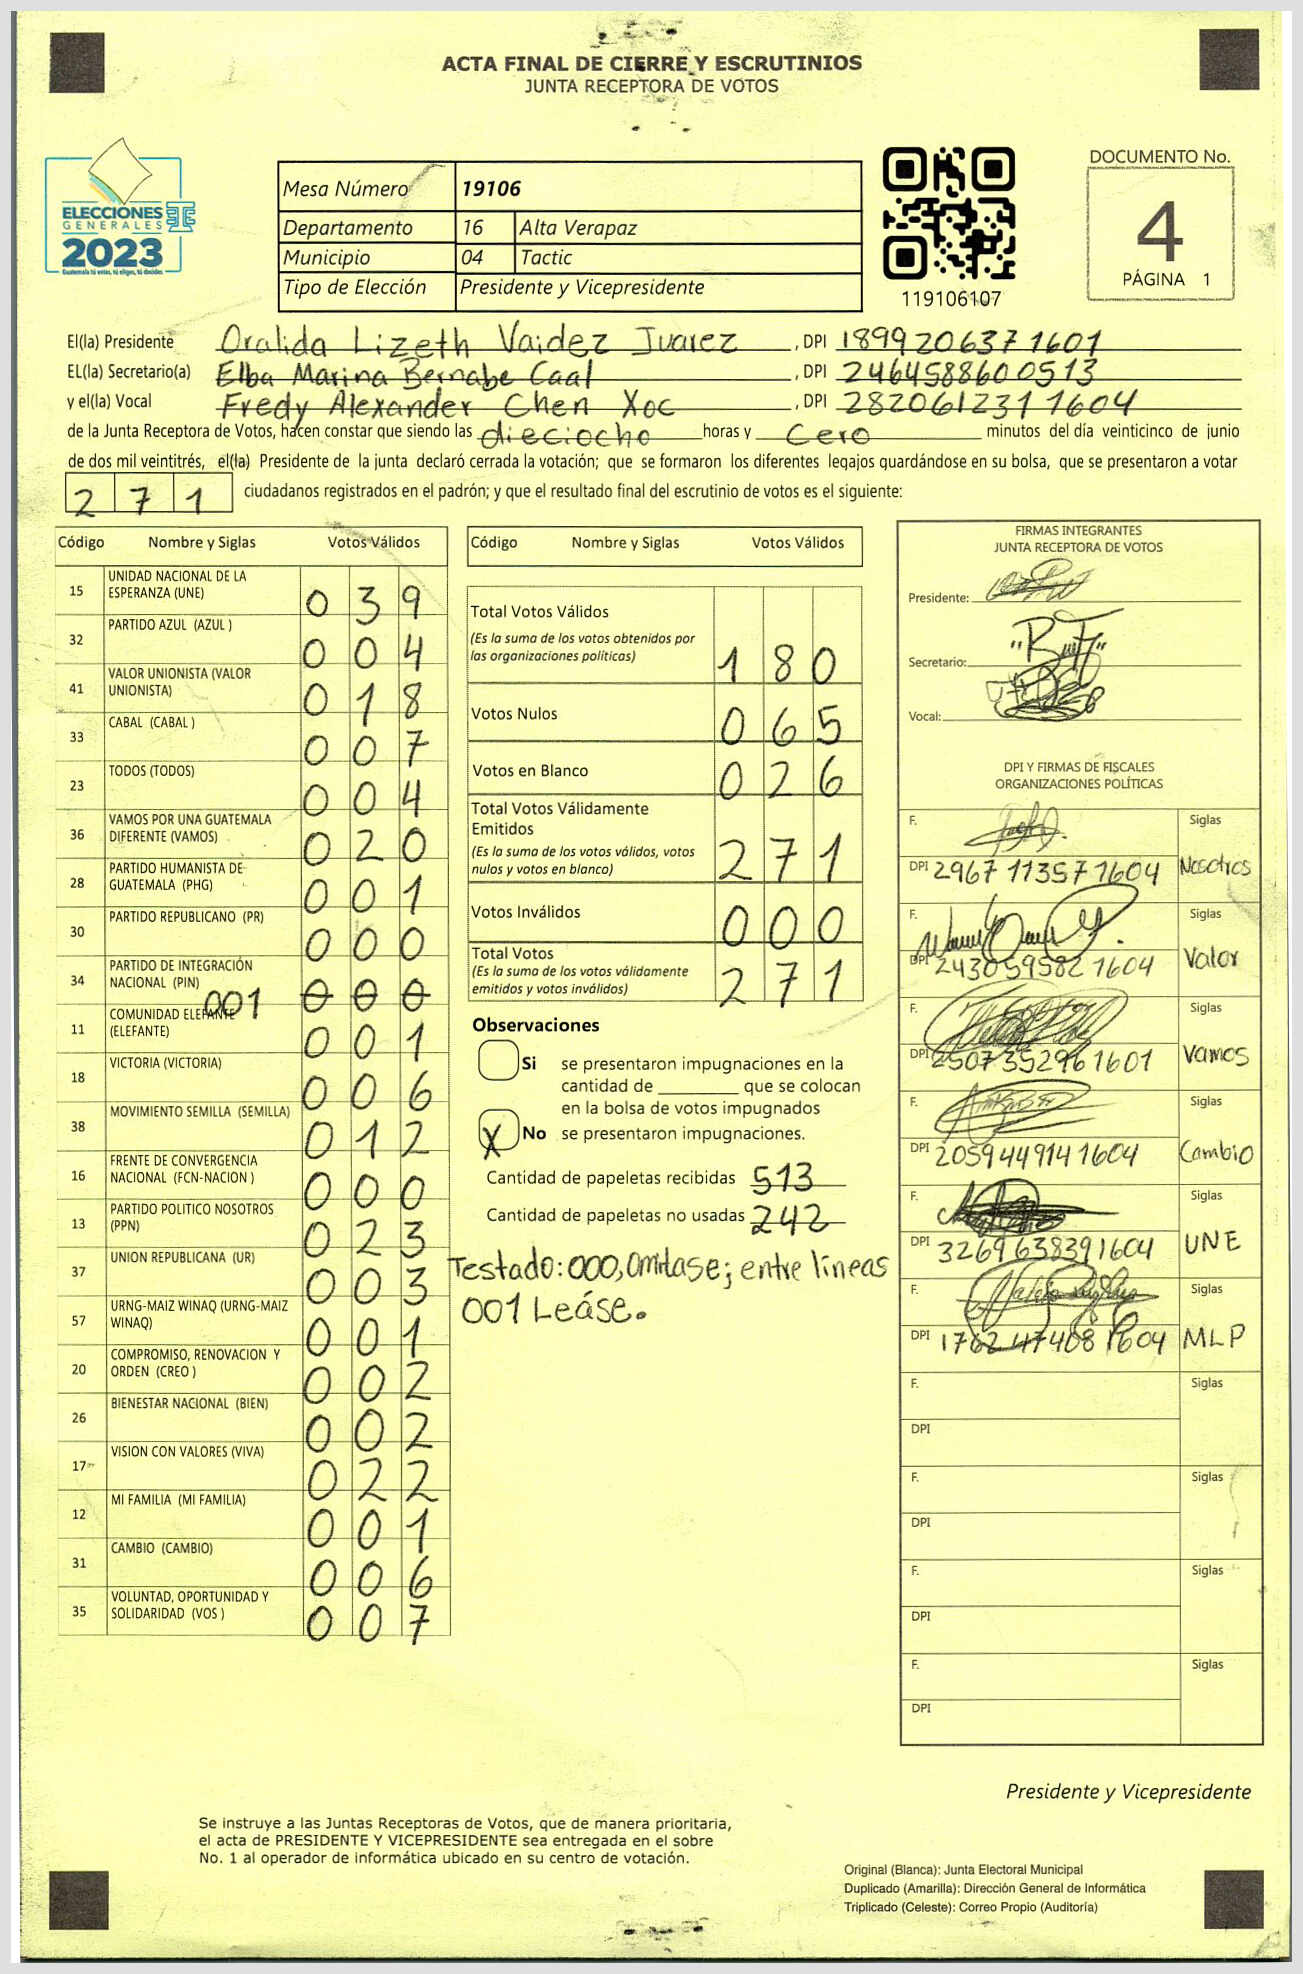 ACTA FINAL DE CIERRE Y ESCRUTINIOS
JUNTA RECEPTORA DE VOTOS
ELECCIONES
GENERALES
2023
Guatemala tú votas, tú eliges, tú decides
Mesa Número 19106
Departamento 16 Alta Verapaz
Municipio 04 Tactic
Tipo de Elección Presidente y Vicepresidente
119106107
DOCUMENTO No.
4
PÁGINA 1
El(la) Presidente Oralida Lizeth Valdez Juarez, DPI 1899206371601
EL(la) Secretario(a) Elba Marina Bernabe Caal, DPI 2464588600513
y el(la) Vocal Fredy Alexander Chen Xoc, DPI 2820612311604
de la Junta Receptora de Votos, hacen constar que siendo las dieciocho horas y Cero minutos del día veinticinco de junio
de dos mil veintitrés, el(la) Presidente de la junta declaró cerrada la votación; que se formaron los diferentes legajos quardándose en su bolsa, que se presentaron a votar
271 ciudadanos registrados en el padrón; y que el resultado final del escrutinio de votos es el siguiente:
Código Nombre y Siglas Votos Válidos
15 UNIDAD NACIONAL DE LA ESPERANZA (UNE) 039
32 PARTIDO AZUL (AZUL ) 004
41 VALOR UNIONISTA (VALOR UNIONISTA) 018
33 CABAL (CABAL ) 007
23 TODOS (TODOS) 004
36 VAMOS POR UNA GUATEMALA DIFERENTE (VAMOS) 020
28 PARTIDO HUMANISTA DE GUATEMALA (PHG) 001
30 PARTIDO REPUBLICANO (PR) 000
34 PARTIDO DE INTEGRACIÓN NACIONAL (PIN) 001 000
11 COMUNIDAD ELEFANTE (ELEFANTE) 001
18 VICTORIA (VICTORIA) 006
38 MOVIMIENTO SEMILLA (SEMILLA) 012
16 FRENTE DE CONVERGENCIA NACIONAL (FCN-NACION ) 000
13 PARTIDO POLITICO NOSOTROS (PPN) 023
37 UNION REPUBLICANA (UR) 003
57 URNG-MAIZ WINAQ (URNG-MAIZ WINAQ) 001
20 COMPROMISO, RENOVACION Y ORDEN (CREO ) 002
26 BIENESTAR NACIONAL (BIEN) 002
17 VISION CON VALORES (VIVA) 022
12 MI FAMILIA (MI FAMILIA) 001
31 CAMBIO (CAMBIO) 006
35 VOLUNTAD, OPORTUNIDAD Y SOLIDARIDAD (VOS ) 007
Código Nombre y Siglas Votos Válidos
Total Votos Válidos 180
(Es la suma de los votos obtenidos por
las organizaciones políticas)
Votos Nulos 065
Votos en Blanco 026
Total Votos Válidamente
Emitidos 271
(Es la suma de los votos válidos, votos
nulos y votos en blanco)
Votos Inválidos 000
Total Votos 271
(Es la suma de los votos válidamente
emitidos y votos inválidos)
Observaciones
Si se presentaron impugnaciones en la
cantidad de ________ que se colocan
en la bolsa de votos impugnados
X No se presentaron impugnaciones.
Cantidad de papeletas recibidas 513
Cantidad de papeletas no usadas 242
Testado: 000, Omitase; entre lineas
001 Leáse.
FIRMAS INTEGRANTES
JUNTA RECEPTORA DE VOTOS
Presidente:
Secretario:
Vocal:
DPI Y FIRMAS DE FISCALES
ORGANIZACIONES POLÍTICAS
F. Siglas
DPI 2967113571604 Nosotros
F. Siglas
DPI 2430595821604 Valor
F. Siglas
DPI 2507352961601 Vamos
F. Siglas
DPI 2059449141604 Cambio
F. Siglas
DPI 3269638391604 UNE
F. Siglas
DPI 1762474081604 MLP
F. Siglas
DPI
F. Siglas
DPI
F. Siglas
DPI
F. Siglas
DPI
Presidente y Vicepresidente
Se instruye a las Juntas Receptoras de Votos, que de manera prioritaria,
el acta de PRESIDENTE Y VICEPRESIDENTE sea entregada en el sobre
No. 1 al operador de informática ubicado en su centro de votación.
Original (Blanca): Junta Electoral Municipal
Duplicado (Amarilla): Dirección General de Informática
Triplicado (Celeste): Correo Propio (Auditoría)